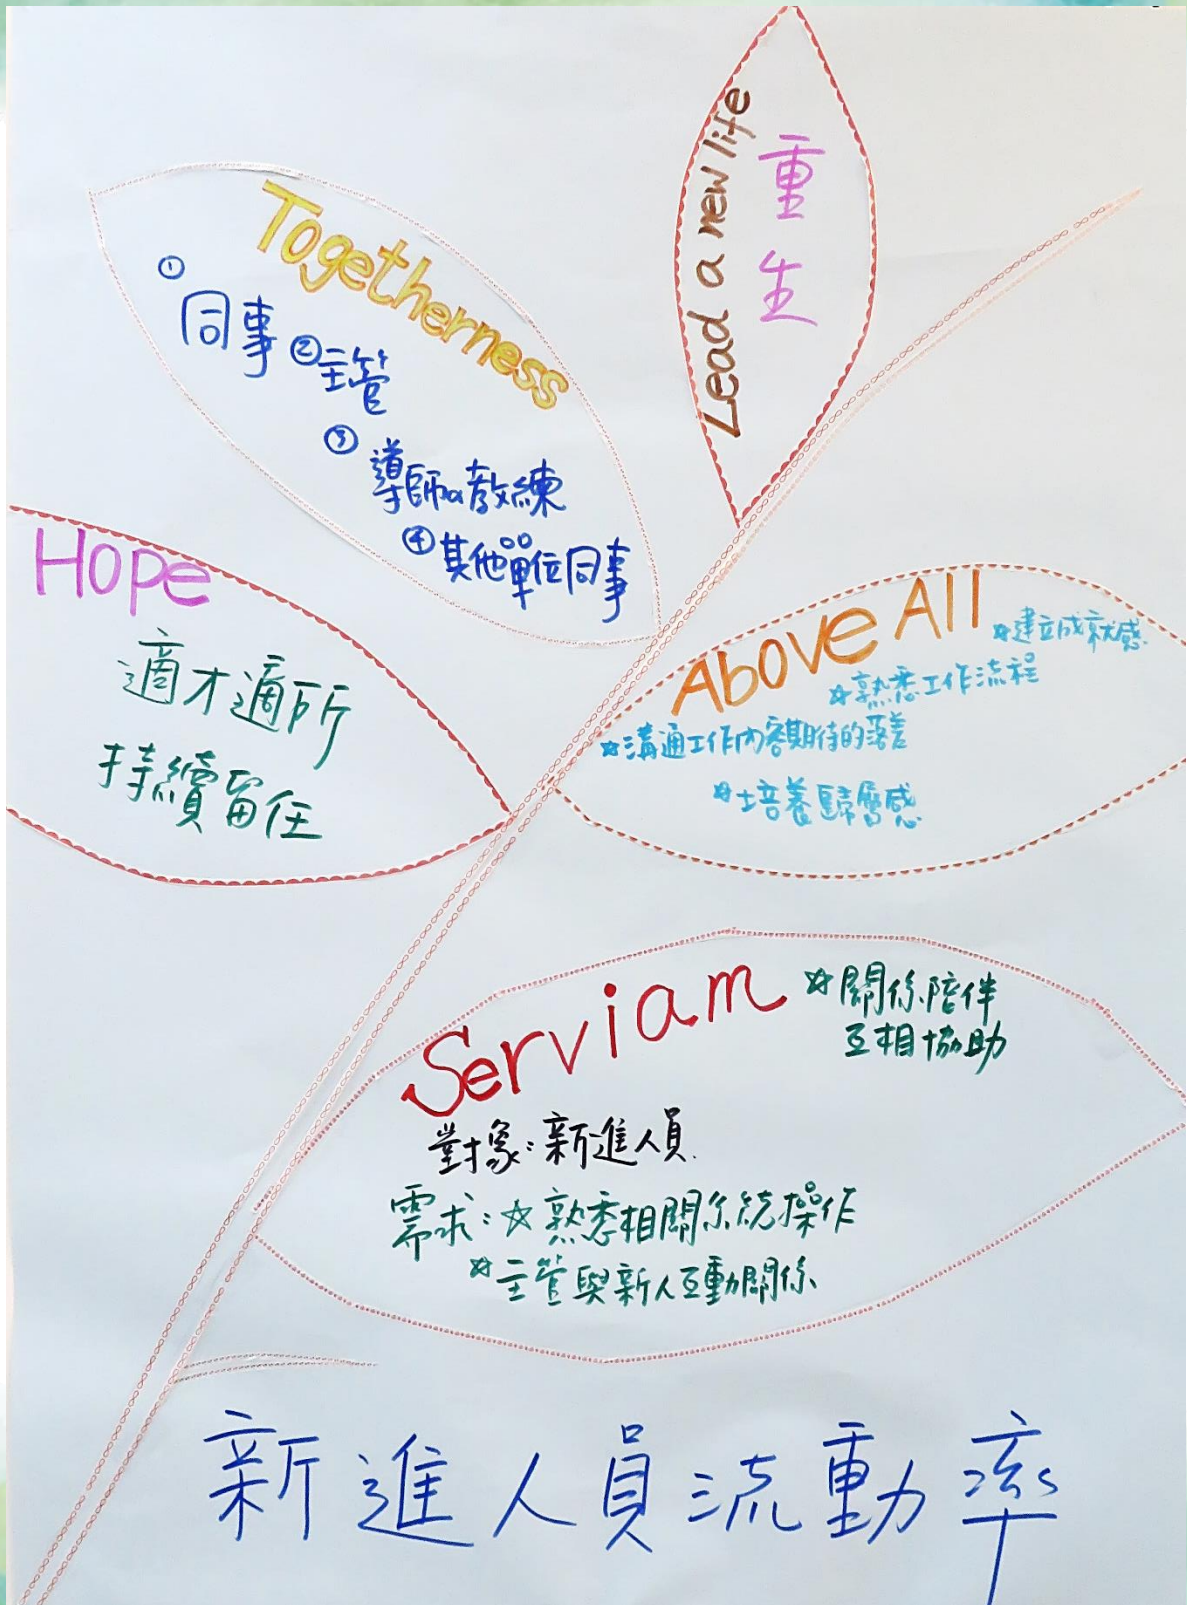 Lead a new life
重生
Togetherness
① 同事
② 主管
③ 導師or教練
④ 其他單位同事
Hope
適才適所
持續留任
Above All
☆建立成就感
☆熟悉工作流程
☆溝通工作內容期待的落差
☆培養歸屬感
Serviam
☆關係陪伴
互相協助
對象:新進人員
需求:☆熟悉相關系統操作
☆主管與新人互動關係
新進人員流動率